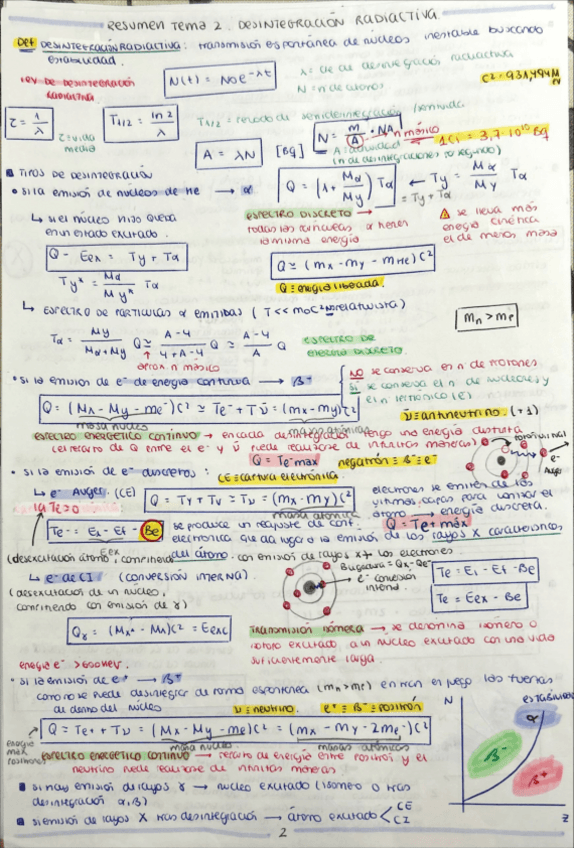 RESUMEN TEMA 2. DESINTEGRACIÓN RADIACTIVA
Def DESINTEGRACIÓN RADIACTIVA: transmisión espontánea de núcleos inestable buscando
estabilidad.
LEY DE DESINTEGRACIÓN
RADIACTIVA
N(t) = N0 e^-λt
λ = cte de desintegración radiactiva
N = n de átomos
C² = 931,494 M
τ = 1/λ
τ = vida
media
T1/2 = ln 2/λ
T1/2 = periodo de semidesintegración /semivida
N = m/A · NA
n másico
1Ci = 3,7·10^10 Bq
A = λN [Bq]
A = actividad
(n de desintegraciones por segundo)
■ TIPOS DE DESINTEGRACIÓN
• si la emisión de núcleos de He → α
Q = (1 + Mα/My) Tα ← Ty = Mα/My Tα
= Ty + Tα
↳ si el núcleo hijo queda
en un estado excitado.
ESPECTRO DISCRETO →
todas las partículas α tienen
la misma energía
⚠ se lleva más
energía cinética
el de menos masa
Q - Eex = Ty + Tα
Ty* = Mα/My* Tα
Q ≃ (mx - my - mHe) C²
Q = energía liberada.
↳ ESPECTRO DE PARTÍCULAS α EMITIDAS (T << m0C² no relativista)
mn > mp
Tα = My/Mα+My Q ≃ A-4/4+A-4 Q ≃ A-4/A Q
aprox. n másico
ESPECTRO DE
ENERGÍA DISCRETO.
• si la emisión de e⁻ de energía continua → β⁻
NO se conserva el n de protones
SI se conserva el n de nucleones y
el n leptónico (e)
Q = (Mx - My - me⁻)C² ≃ Te⁻ + Tν̄ = (mx - my)C²
masa nucleos
masa atómicas
ν̄ = antineutrino. (+1)
ESPECTRO ENERGÉTICO CONTINUO → en cada desintegración tengo una energía distinta
(el reparto de Q entre el e⁻ y ν̄ puede realizarse de infinitas maneras)
Q = Te⁻max
negatrón ≡ β⁻ ≡ e⁻
• si la emisión de e⁻ discretos:
CE = captura eletrónica
e⁻
Auger
↳ e⁻ Auger (CE)
Q = Ty + Tν ≃ Tν = (mx - my)C²
masa atómica
electrones se emiten de las
últimas capas para ionizar el
átomo → energía discreta.
Q = Te+ máx
Te⁻ = Ex - Ef - Be
Eex
se produce un reajuste de conf.
electrónica que da lugar a la emisión de los rayos X característicos
del átomo.
(desexcitación átomo, coincidiendo con emisión de rayos x)
↳ e⁻ de CI (CONVERSIÓN INTERNA)
(desexcitación de un núcleo,
coincidiendo con emisión de γ)
e⁻ conversión
interna
Te = Ei - Ef - Be
Te = Eex - Be
Qγ = (Mx* - Mx)C² = Eexc
TRANSMISIÓN ISÓMERA → se denomina isómero o
núcleo excitado a un núcleo excitado con una vida
suficientemente larga.
energía e⁻ > 600 keV.
• si la emisión de e⁺ → β⁺
como no se puede desintegrar de forma espontánea (mn > mp) entran en juego las fuerzas
de dentro del núcleo
ν = neutrino.
e⁺ ≡ β⁺ ≡ positrón
Q = Te⁺ + Tν = (Mx - My - me)C² = (mx - my - 2me⁻)C²
masa nucleo
masas atómicas
energía
max
positrones
ESPECTRO ENERGÉTICO CONTINUO → reparto de energía entre positrón y el
neutrino puede realizarse de infinitas maneras
N
estabilidad
α
β⁻
β⁺
Z
■ si hay emisión de rayos γ → núcleo excitado (isómero o tras
desintegración α, β)
■ si emisión de rayos X tras desintegración → átomo excitado < CE
CI
2